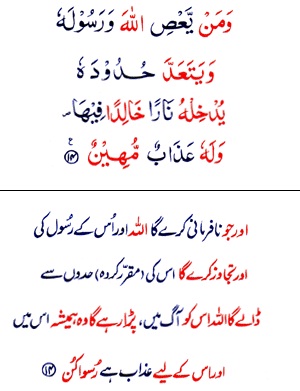 وَمَنْ يَّعْصِ اللّٰهَ وَرَسُوْلَهٗ
وَيَتَعَدَّ حُدُوْدَهٗ
يُدْخِلْهُ نَارًا خَالِدًا فِيْهَا ۪
وَلَهٗ عَذَابٌ مُّهِيْنٌ ۧ ﴿۱۴﴾
اور جو نافرمانی کرے گا اللہ اور اُس کے رسُول کی
اور تجاوز کرے گا اس کی (مقرّر کردہ) حدوں سے
ڈالے گا اللہ اس کو آگ میں، پڑا رہے گا وہ ہمیشہ اس میں
اور اس کے لیے عذاب ہے رُسوا کُن ﴿۱۴﴾